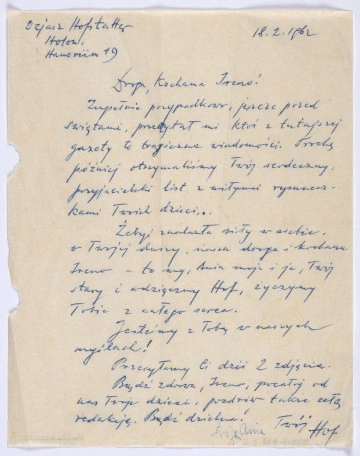 Ozjasz Hofstatter
Holon,
Haneviim 19
18.2.1962
Droga, Kochana Ireno!
Zupełnie przypadkowo, jeszcze przed
świętami, przeczytał mi ktoś z tutejszej
gazety tę tragiczną wiadomość. Trochę
później otrzymaliśmy Twój serdeczny,
przyjacielski list z miłymi rysunecz-
kami Twoich dzieci...
Żebyś znalazła siły w sobie
w Twojej duszy, nasza droga i kochana
Ireno – to my, Ania moja i ja, Twój
stary i wdzięczny Hof, życzymy
Tobie z całego serca.
Jesteśmy z Tobą w naszych
myślach!
Przesyłamy Ci dziś 2 zdjęcia.
Bądź zdrowa, Ireno, pocałuj od
nas Twoje dzieci, pozdrów także całą
redakcję. Bądź dzielna!
Twój
Hof
Ania